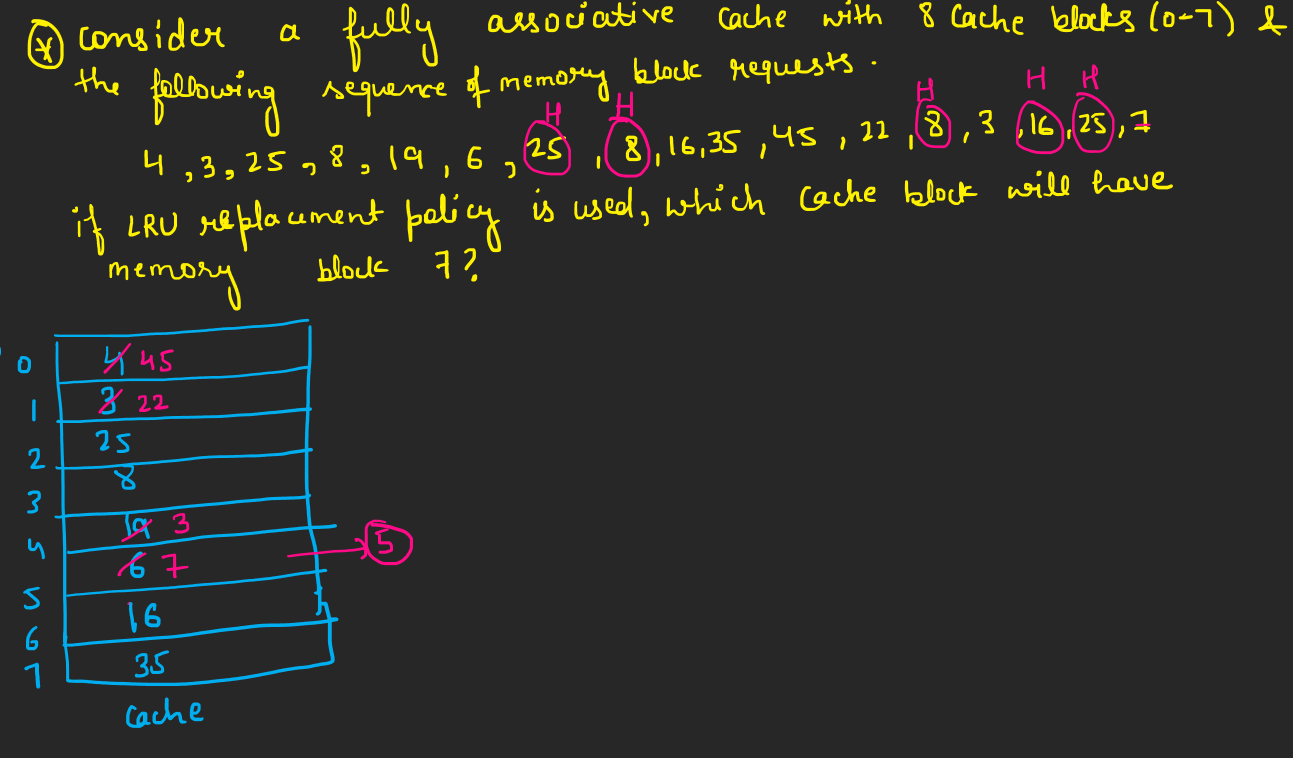 (*) consider a fully associative cache with 8 cache blocks (0-7) &
the following sequence of memory block requests.
H H H H H
4, 3, 25, 8, 19, 6, 25, 8, 16, 35, 45, 22, 8, 3, 16, 25, 7
if LRU replacment policy is used, which cache block will have
memory block 7?
0 4 45
1 3 22
2 25
3 8
4 19 3
5 6 7 → 5
6 16
7 35
cache